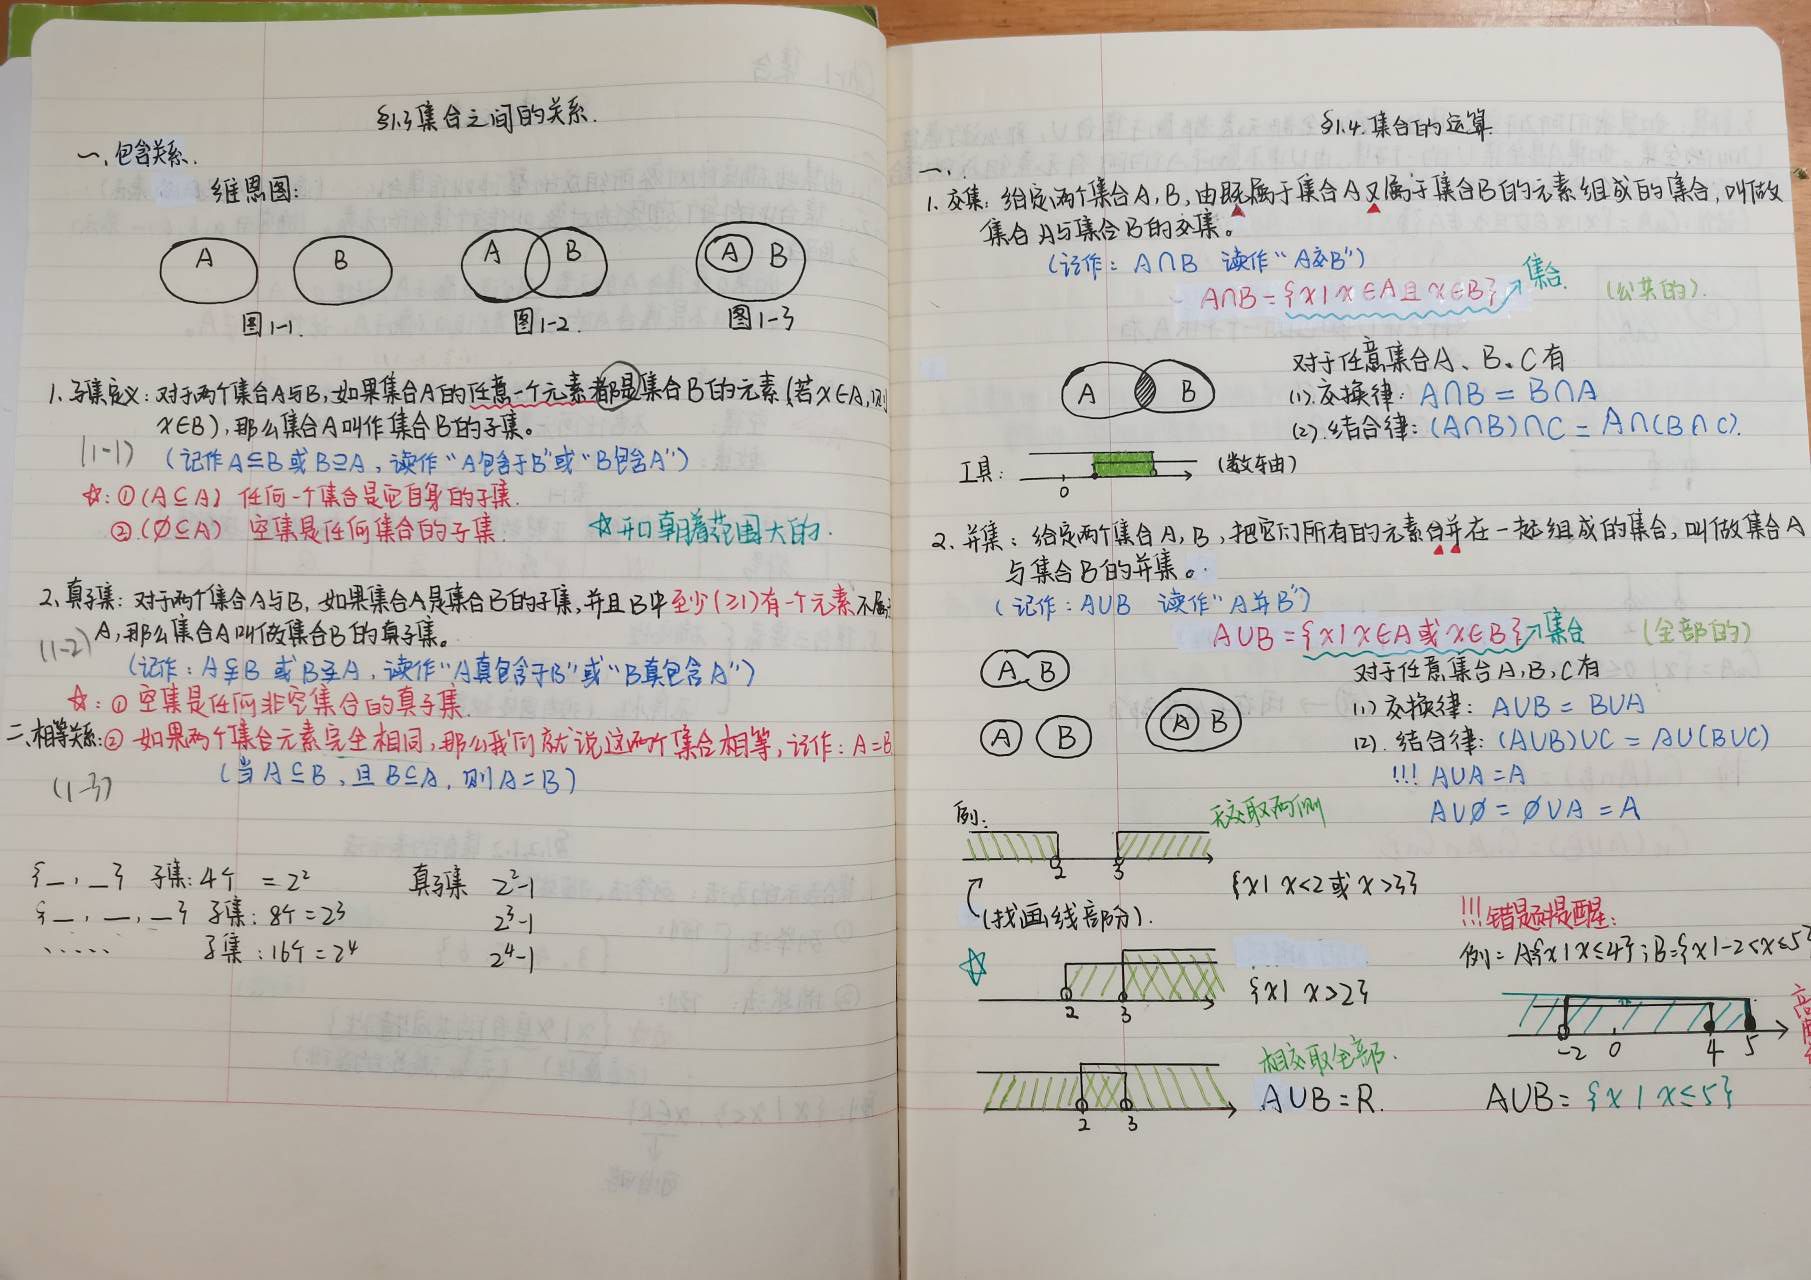 §1.3 集合之间的关系.
一、包含关系.
维恩图:
A B A B A B
图1-1. 图1-2. 图1-3
1. 子集定义:对于两个集合A与B,如果集合A的任意一个元素都是集合B的元素(若x∈A,则
x∈B),那么集合A叫作集合B的子集。
(1-1) (记作A⊆B或B⊇A,读作“A包含于B”或“B包含A”)
☆:①(A⊆A) 任何一个集合是它自身的子集.
②.(∅⊆A) 空集是任何集合的子集. ☆开口朝着范围大的.
2. 真子集:对于两个集合A与B,如果集合A是集合B的子集,并且B中至少(≥1)有一个元素不属于
A,那么集合A叫做集合B的真子集。
(1-2)
(记作:A⫋B 或 B⫌A,读作“A真包含于B”或“B真包含A”)
☆:① 空集是任何非空集合的真子集.
二、相等关系:② 如果两个集合元素完全相同,那么我们就说这两个集合相等,记作:A=B
(当A⊆B,且B⊆A,则A=B)
(1-3)
{_,_} 子集:4个 =2² 真子集 2²-1
{_,_,_} 子集:8个=2³ 2³-1
...... 子集:16个=2⁴ 2⁴-1
§1.4.集合的运算
一、
1. 交集:给定两个集合A,B,由既属于集合A又属于集合B的元素组成的集合,叫做
集合A与集合B的交集。
(记作:A∩B 读作“A交B”)
A∩B={x|x∈A且x∈B}↗集合. (公共的).
A B
对于任意集合A、B、C有
(1).交换律:A∩B=B∩A
(2).结合律:(A∩B)∩C=A∩(B∩C).
工具: 0 (数轴)
2. 并集:给定两个集合A,B,把它们所有的元素合并在一起组成的集合,叫做集合A
与集合B的并集。
(记作:A∪B 读作“A并B”)
A∪B={x|x∈A或x∈B}↗集合 (全部的)
A B
A B A B
对于任意集合A,B,C有
(1)交换律:A∪B=B∪A
(2).结合律:(A∪B)∪C=A∪(B∪C)
!!! A∪A=A
A∪∅=∅∪A=A
例: 无交取两侧
2 3
{x|x<2或x>3}
(找画线部分).
☆ 2 3
{x|x>2}
2 3
相交取全部.
A∪B=R.
!!!错题提醒:
例:A{x|x≤4};B={x|-2<x≤5}
-2 0 4 5
A∪B={x|x≤5}